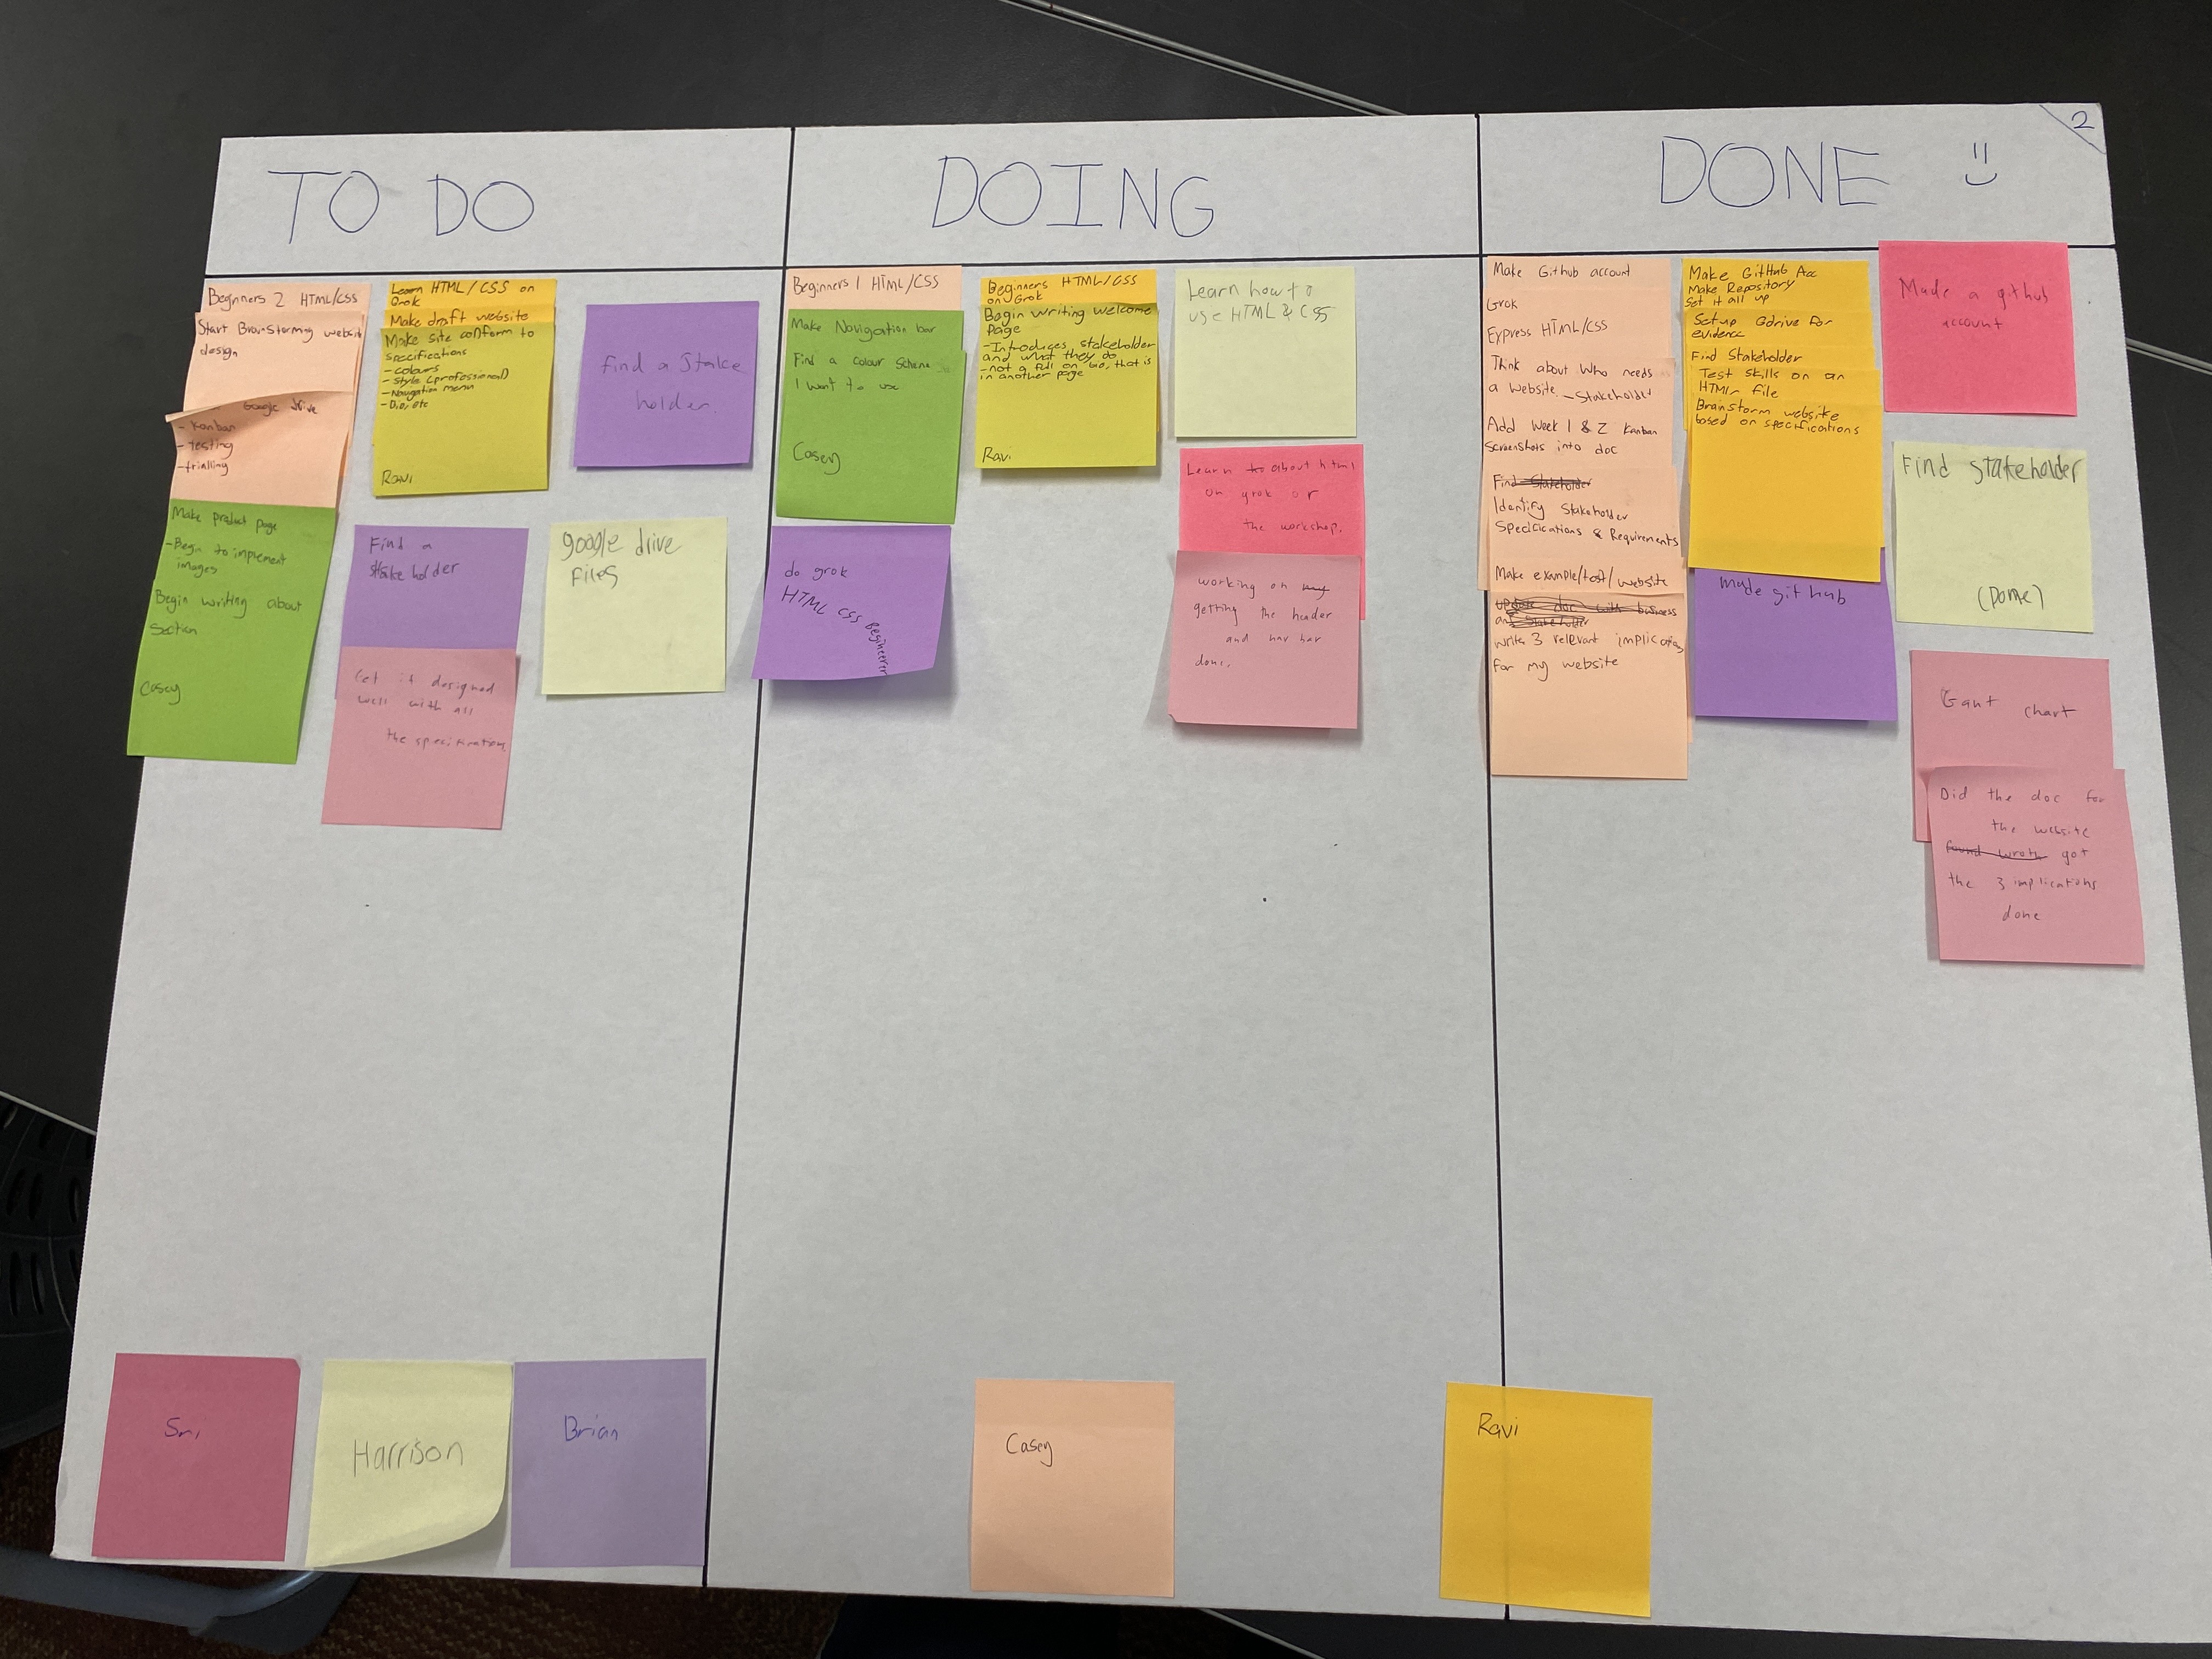 TO DO
DOING
DONE
2
Beginners 2 HTML/CSS
Start Brainstorming website
design
Google drive
- Kanban
- testing
- trialling
Make product page
- Begin to implement
images
Begin writing about
section
Casey
Learn HTML/CSS on
Grok
Make draft website
Make site conform to
specifications
- colours
- style (professional)
- Navigation menu
- Bio, etc
Ravi
Find a Stake
holder.
Find a
stake holder
Get it designed
well with all
the specifications
google drive
files
Beginners 1 HTML/CSS
Make Navigation bar
Find a colour scheme
I want to use
Casey
do grok
HTML CSS Begineerer
Beginners HTML/CSS
on Grok
Begin writing welcome
Page
- Introduces stakeholder
and what they do
- not a full on bio, that is
in another page
Ravi
Learn how to
use HTML & CSS
Learn to about html
on grok or
the workshop.
working on my
getting the header
and nav bar
done.
Make Github account
Grok
Express HTML/CSS
Think about who needs
a website - Stakeholder
Add Week 1 & 2 Kanban
Screenshots into doc
Find Stakeholder
Identify Stakeholder
Specifications & Requirements
Make example/test/website
update doc with business
and Stakeholder
write 3 relevant implications
for my website
Make GitHub Acc
Make Repository
Set it all up
Setup Gdrive for
evidence
Find Stakeholder
Test skills on an
HTML file
Brainstorm website
based on specifications
made git hub
Made a github
account
Find stakeholder
(Done)
Gant chart
Did the doc for
the website
found wrote got
the 3 implications
done
Sri
Harrison
Brian
Casey
Ravi